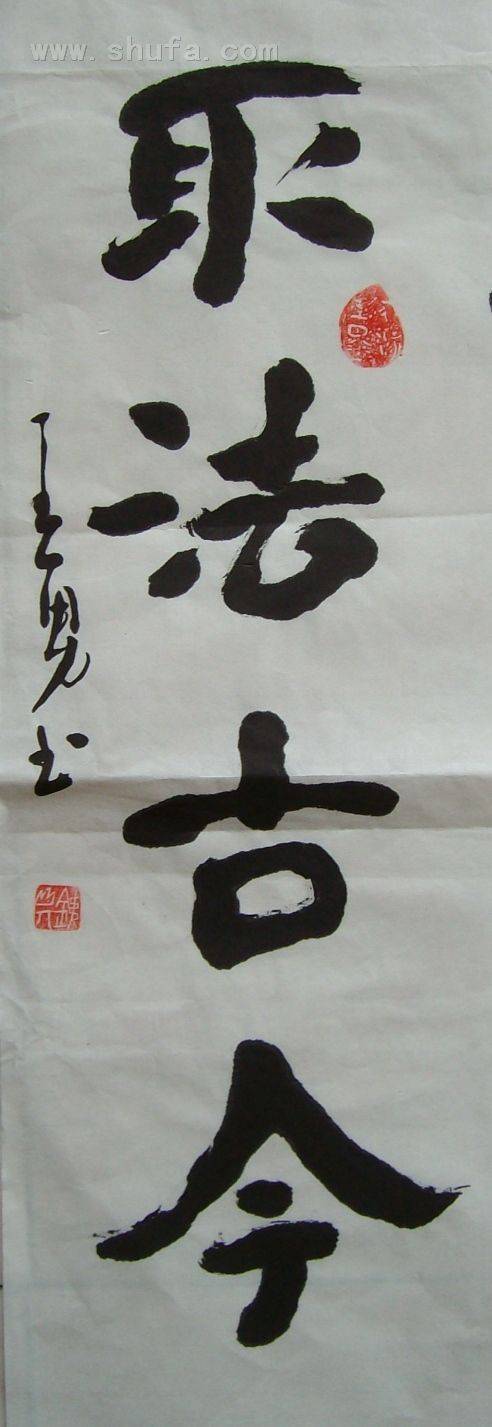 www.shufa.com
取法古今
王勇书